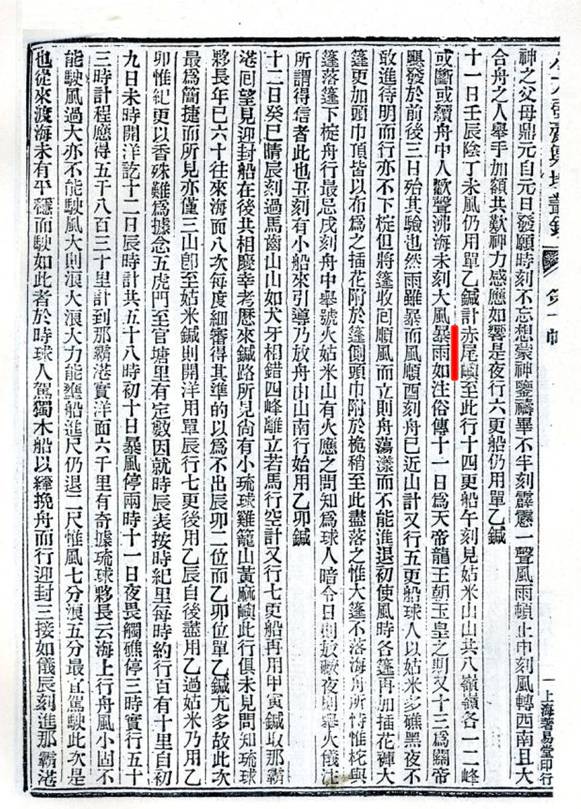 小方壺齋輿地叢鈔 第十帙
上海著易堂印行
神之父母鼎元自元日發願時刻不忘想蒙神鑒禱畢不半刻霹靂一聲風雨頓止申刻風轉西南且大
合舟之人舉手加額共歎神力感應如響是夜行六更船仍用單乙鍼
十一日壬辰陰丁未風仍用單乙鍼計赤尾嶼至此行十四更船午刻見姑米山山共八嶺嶺各一二峰
或斷或續舟中人歡聲沸海未刻大風暴雨如注俗傳十一日爲天帝龍王朝玉皇之期又十三爲關帝
颶發於前後三日殆其驗也然雨雖暴而風順酉刻舟已近山計又行五更船球人以姑米多礁黑夜不
敢進待明而行亦不下椗但將篷收回順風而立則舟蕩漾而不能進退初使風時各篷再加插花褲大
篷更加頭巾頂皆以布爲之插花附於篷側頭巾附於桅稍至此盡落之惟大篷不落海舟所恃惟柁與
篷落篷下椗舟行最忌戌刻舟中舉號火姑米山有火應之問知爲球人暗令日則放礮夜則舉火儀注
所謂得信者此也丑刻有小船來引導乃放舟由山南行始用乙卯鍼
十二日癸巳晴辰刻過馬齒山山如犬牙相錯四峰離立若馬行空計又行七更船再用甲寅鍼取那霸
港回望見迎封船在後共相慶幸老歷來鍼路所見尙有小琉球雞籠山黃麻嶼此行俱未見問知琉球
夥長年已六十往來海面八次每度細審得其準的以爲不出辰卯二位而乙卯位單乙鍼尤多故此次
最爲簡捷而所見亦僅三山卽至姑米鍼則開洋用單辰行七更後用乙辰自後盡用乙過姑米乃用乙
卯惟紀更以香殊難爲據念五虎門至官塘里有定數因就時辰表按時紀里每時約行百有十里自初
九日未時開洋訖十二日辰時計共五十八時初十日暴風停兩時十一日夜畏觸礁停三時實行五十
三時計程應得五千八百三十里計到那霸港實洋面六千里有奇據琉球夥長云海上行舟風小固不
能駛風過大亦不能駛風大則浪大浪大力能壅船進尺仍退二尺惟風七分浪五分最宜駕駛此次是
也從來渡海未有平穩而駛如此者於時球人駕獨木船以縴挽舟而行迎封三接如儀辰刻進那霸港